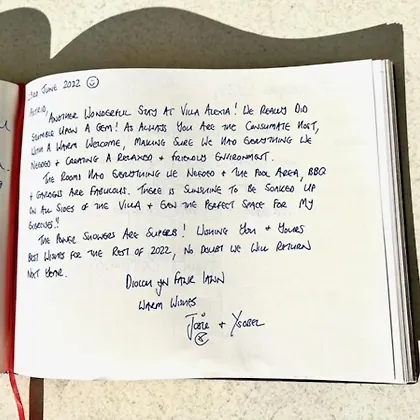 23rd June 2022 ☺
Astrid,
Another Wonderful Stay at Villa Alexia! We Really Did
Stumble Upon a Gem! As Always You Are the Consumate Host,
With a Warm Welcome, Making Sure We Had Everything We
Needed + Creating a Relaxed + Friendly Environment.
The Rooms Had Everything We Needed + the Pool Area, BBQ
+ Gardens Are Fabulous. There is Sunshine to Be Soaked Up
on All Sides of the Villa + Even the Perfect Space for My
Exercises!!
The Power Showers Are Superb! Wishing You + Yours
Best Wishes for the Rest of 2022, No Doubt We Will Return
Next Year.
Diolch yn Fawr Iawn
Warm Wishes
Josie + Ysobel